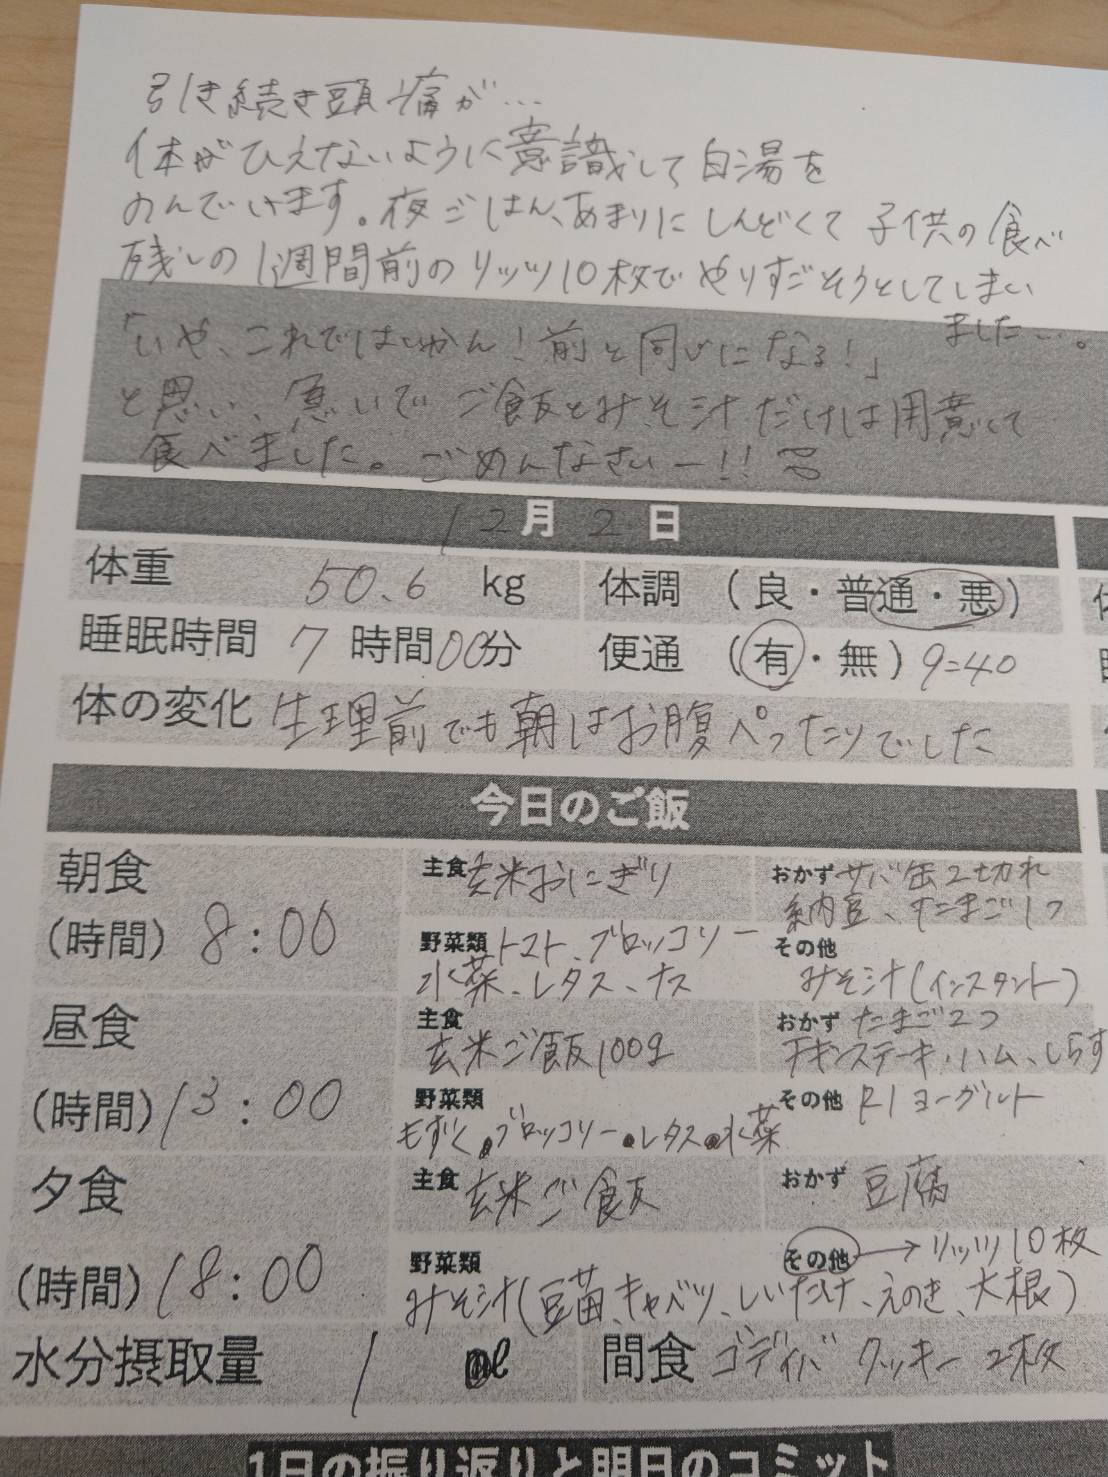 引き続き頭痛が…
体がひえないように意識して白湯を
のんでいます。夜ごはん、あまりにしんどくて子供の食べ
残しの1週間前のリッツ10枚でやりすごそうとしてしまい
ました…。
「いや、これではいかん!前と同じになる!」
と思い、急いでご飯とみそ汁だけは用意して
食べました。ごめんなさいー!!
12月2日
体重 50.6 kg 体調 (良・普通・悪)
睡眠時間 7時間00分 便通 (有・無) 9:40
体の変化 生理前でも朝はお腹ぺったりでした
今日のご飯
朝食 主食 玄米おにぎり おかず サバ缶2切れ
納豆、たまご1つ
(時間) 8:00 野菜類 トマト、ブロッコリー その他
水菜、レタス、ナス みそ汁(インスタント)
昼食 主食 おかず たまご2つ
玄米ご飯100g チキンステーキ、ハム、しらす
(時間) 13:00 野菜類 その他 R1ヨーグルト
もずく、ブロッコリー・レタス・水菜
夕食 主食 玄米ご飯 おかず 豆腐
(時間) 18:00 野菜類 その他→リッツ10枚
みそ汁(豆苗、キャベツ、しいたけ、えのき、大根)
水分摂取量 1 ℓ 間食 ゴディバ クッキー 2枚
1日の振り返りと明日のコミット